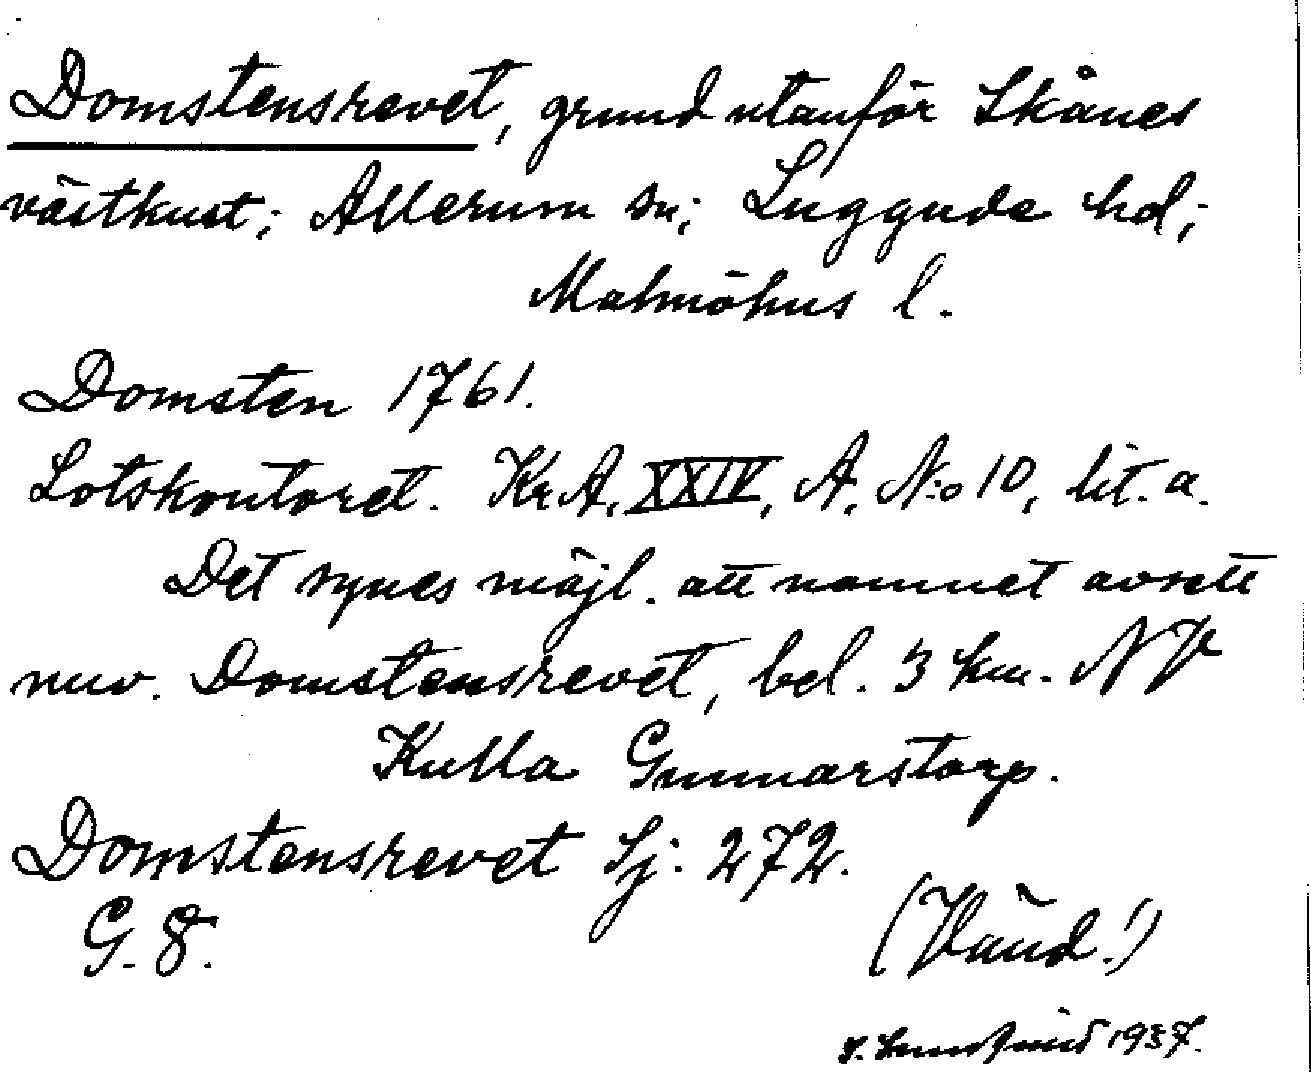 Domstensrevet, grund utanför Skånes
västkust; Allerum sn; Luggude hd;
Malmöhus l.
Domsten 1761.
Lotskontoret. Kr.A. XXIV, A. N:o 10, lit. a.
Det synes möjl. att namnet avsett
nuv. Domstensrevet, bel. 3 km. NV
Kulla Gunnarstorp.
Domstensrevet Sj. 272.
G. 8.
(Vänd!)
1937.